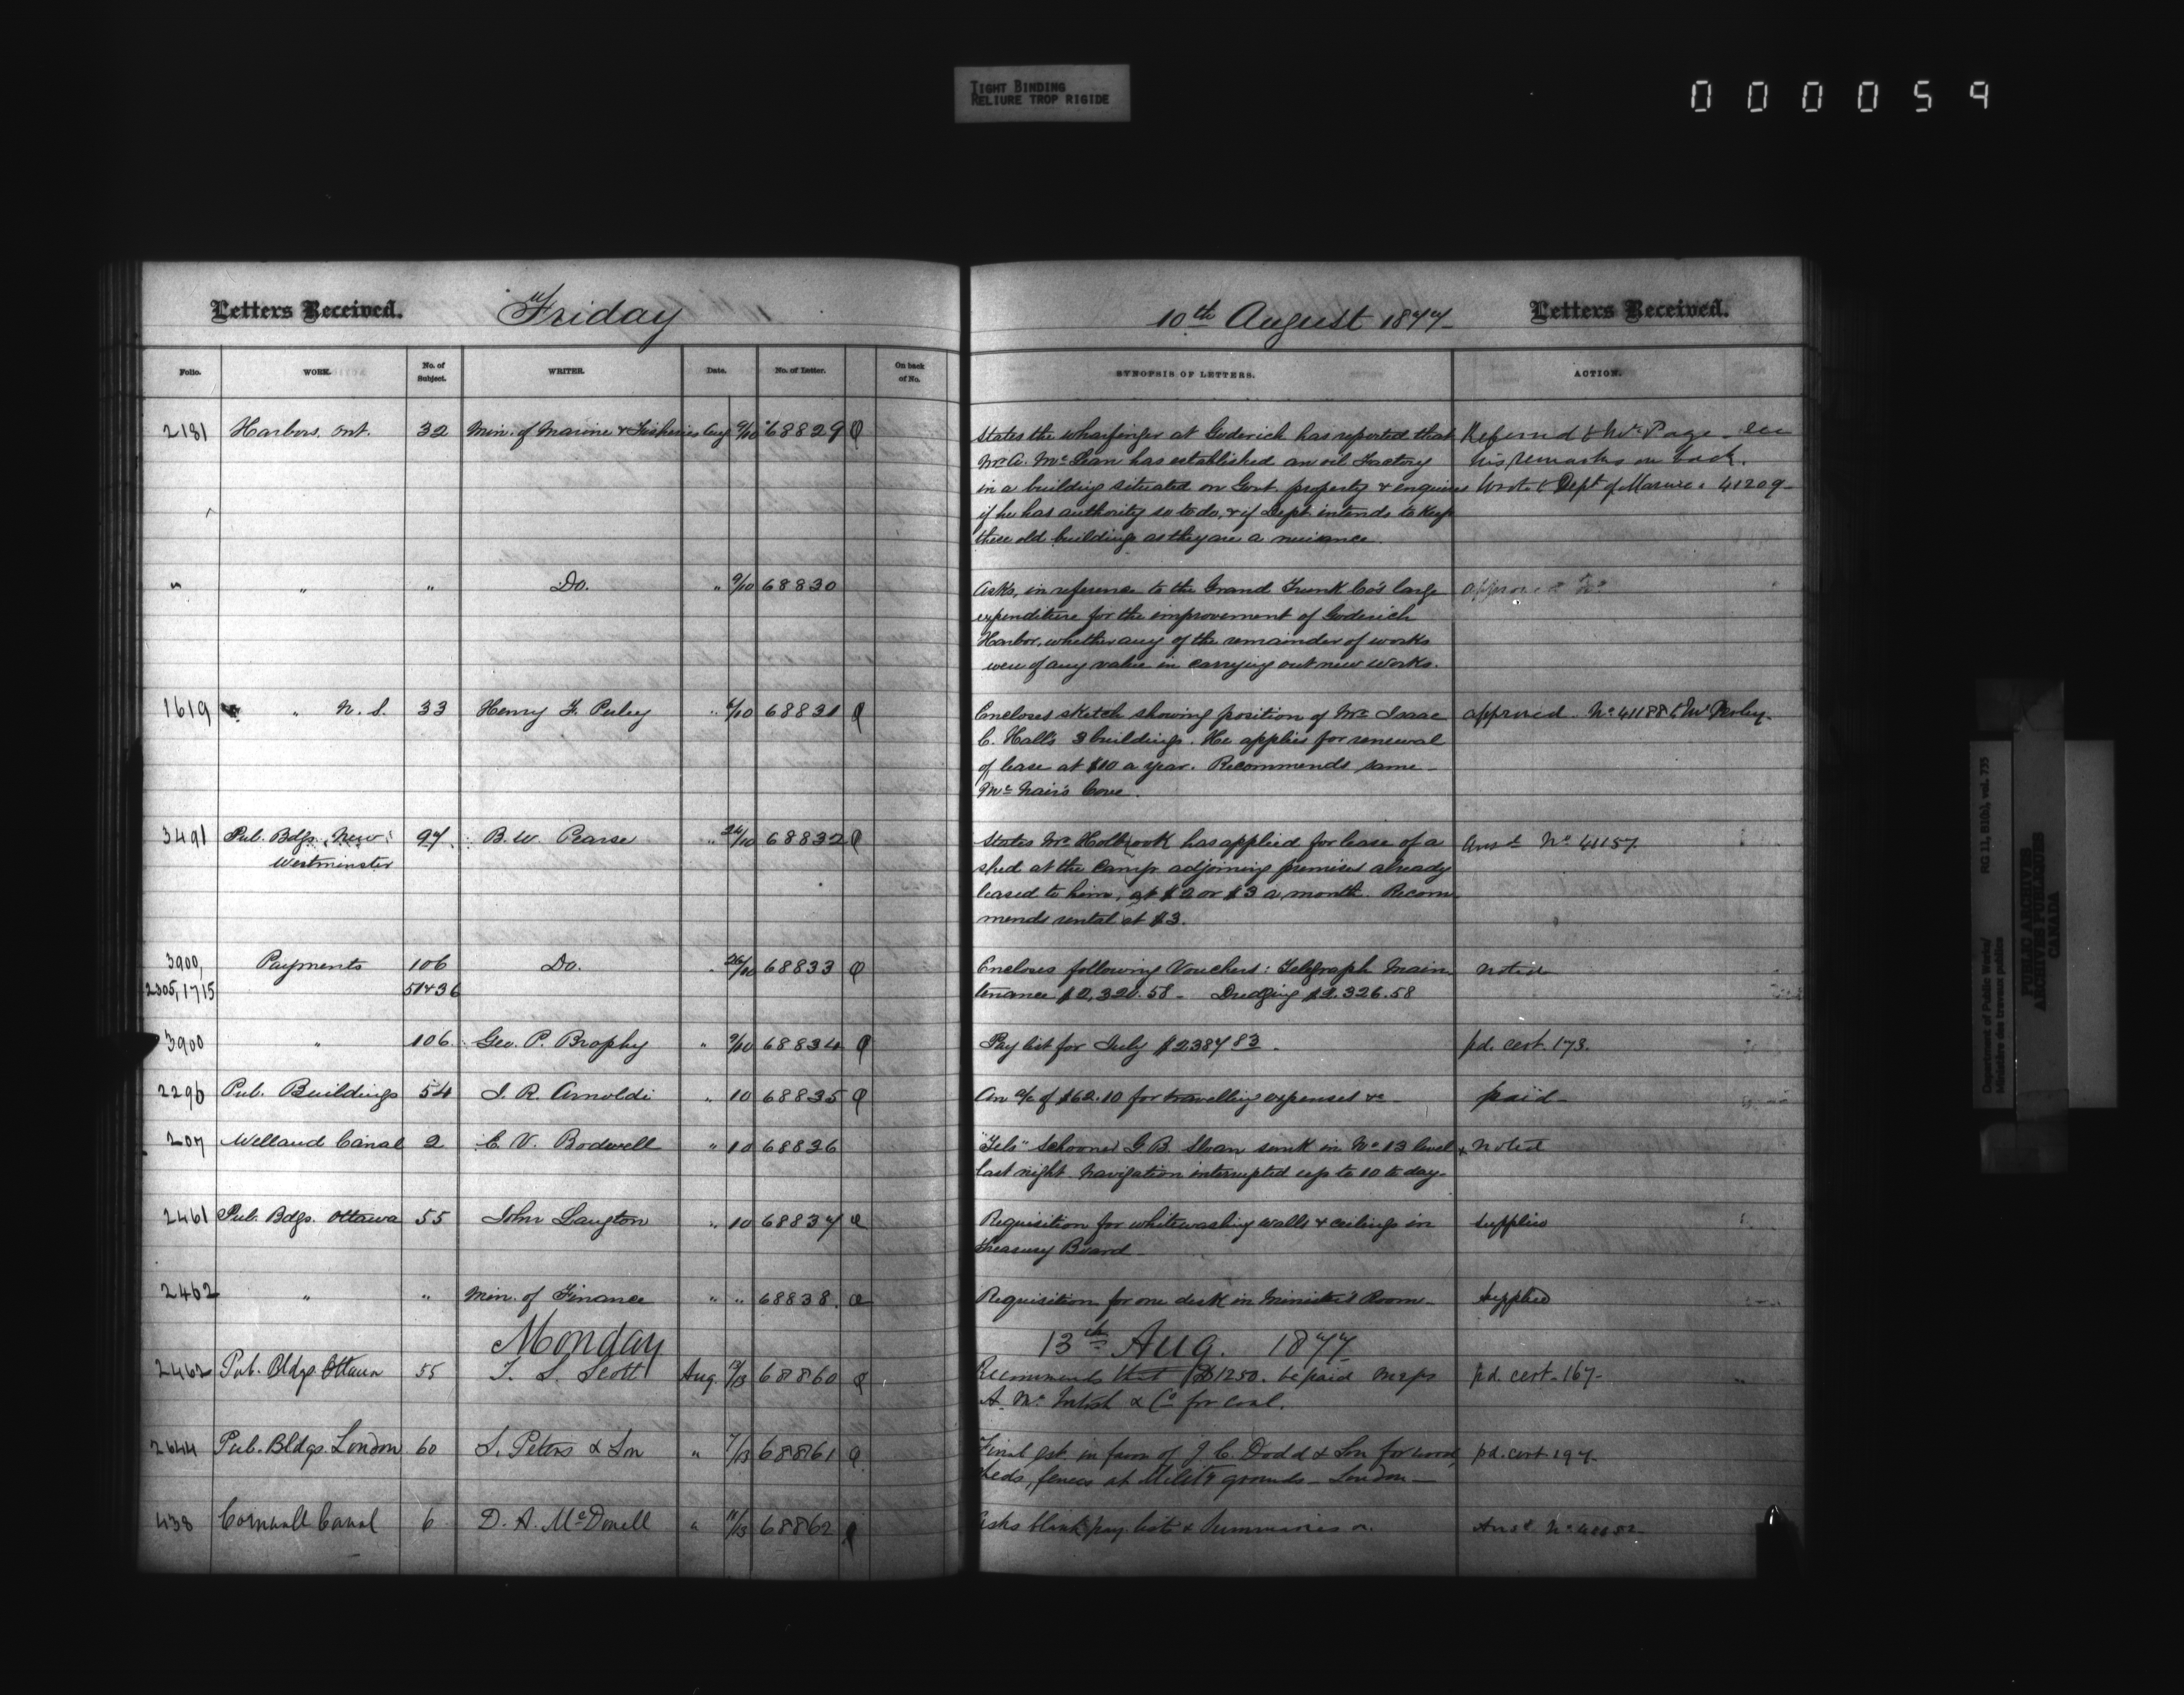 TIGHT BINDING
RELIURE TROP RIGIDE
000059
Letters Received. Friday 10th August 1877 Letters Received.
Folio. WORK. No. of Subject. WRITER. Date. No. of Letter. On back of No. SYNOPSIS OF LETTERS. ACTION.
2181 Harbors, Ont. 32 Min. of Marine & Fisheries Aug 9/10 68829 States the wharfinger at Goderich has reported that Referred to Mr Page - See
Mr A. McLean has established an oil Factory his remarks on back.
in a building situated on Govt. property & enquires Wrote to Dept of Marine. 41209-
if he has authority so to do, & if Dept. intends to keep
these old buildings as they are a nuisance.
" " " Do. " 9/10 68830 Asks, in reference to the Grand Trunk Co's large
expenditure for the improvement of Goderich
Harbor, whether any of the remainder of works
were of any value in carrying out new works.
1619 " N. S. 33 Henry F. Perley " 6/10 68831 Encloses sketch showing position of Mr Isaac approved. No 41188 to Mr Perley-
C. Hall's 3 buildings. He applies for renewal
of lease at $10 a year. Recommends same -
McNair's Cove.
3491 Pub. Bdgs. New 97. B. W. Pearse " 24/10 68832 States Mr Holbrook has applied for lease of a Ansd No 41157
Westminster shed at the Camp adjoining premises already
leased to him, at $2 or $3 a month. Recom
mends rental at $3.
3900, Payments 106 Do. " 26/10 68833 Encloses following Vouchers: Telegraph Main noted
2305, 1715 51436 tenance $2,320.58 - Dredging $2.326.58
3900 " 106 Geo. P. Brophy " 9/10 68834 Pay list for July $2387 83. pd. cert. 173.
2296 Pub. Buildings 54 J. R. Arnoldi " 10 68835 An a/c of $62.10 for travelling expenses &c - paid-
207 Welland Canal 2 C. V. Bodwell " 10 68836 "Tel" Schooner G. B. Sloan sunk in No 13 level noted
last night. Navigation interrupted up to 10 to day-
2461 Pub. Bdgs. Ottawa 55 John Langton " 10 68837 Requisition for whitewashing walls & ceilings in supplied
Treasury Board-
2462 " " Min. of Finance " " 68838. Requisition for one desk in Minister's Room- Supplied
Monday 13th Aug. 1877
2462 Pub. Bldgs. Ottawa 55 T. S. Scott Aug. 68860 Recommends that $1250. be paid Messrs pd. cert. 167-
A. McIntosh & Co for coal.
2644 Pub. Bldgs. London 60 S. Peters & Son " 7/13 68861 Final est. in favor of J. C. Dodd & Son for wood pd. cert. 197-
sheds, fences at Mility grounds - London -
438 Cornwall Canal 6 D. A. McDonell " 11/13 68862 Asks blank pay lists & Summaries Ansd
Department of Public Works/
Ministère des travaux publics
RG 11, B1(b), vol. 735
PUBLIC ARCHIVES
ARCHIVES PUBLIQUES
CANADA